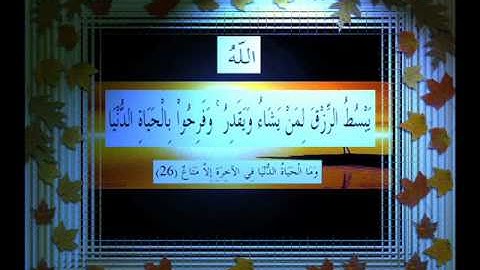 اللَّهُ
يَبْسُطُ الرِّزْقَ لِمَنْ يَشَاءُ وَيَقْدِرُ ۚ وَفَرِحُواْ بِالْحَيَاةِ الدُّنْيَا
وَمَا الْحَيَاةُ الدُّنْيَا فِي الآخِرَةِ إِلاَّ مَتَاعٌ (26)